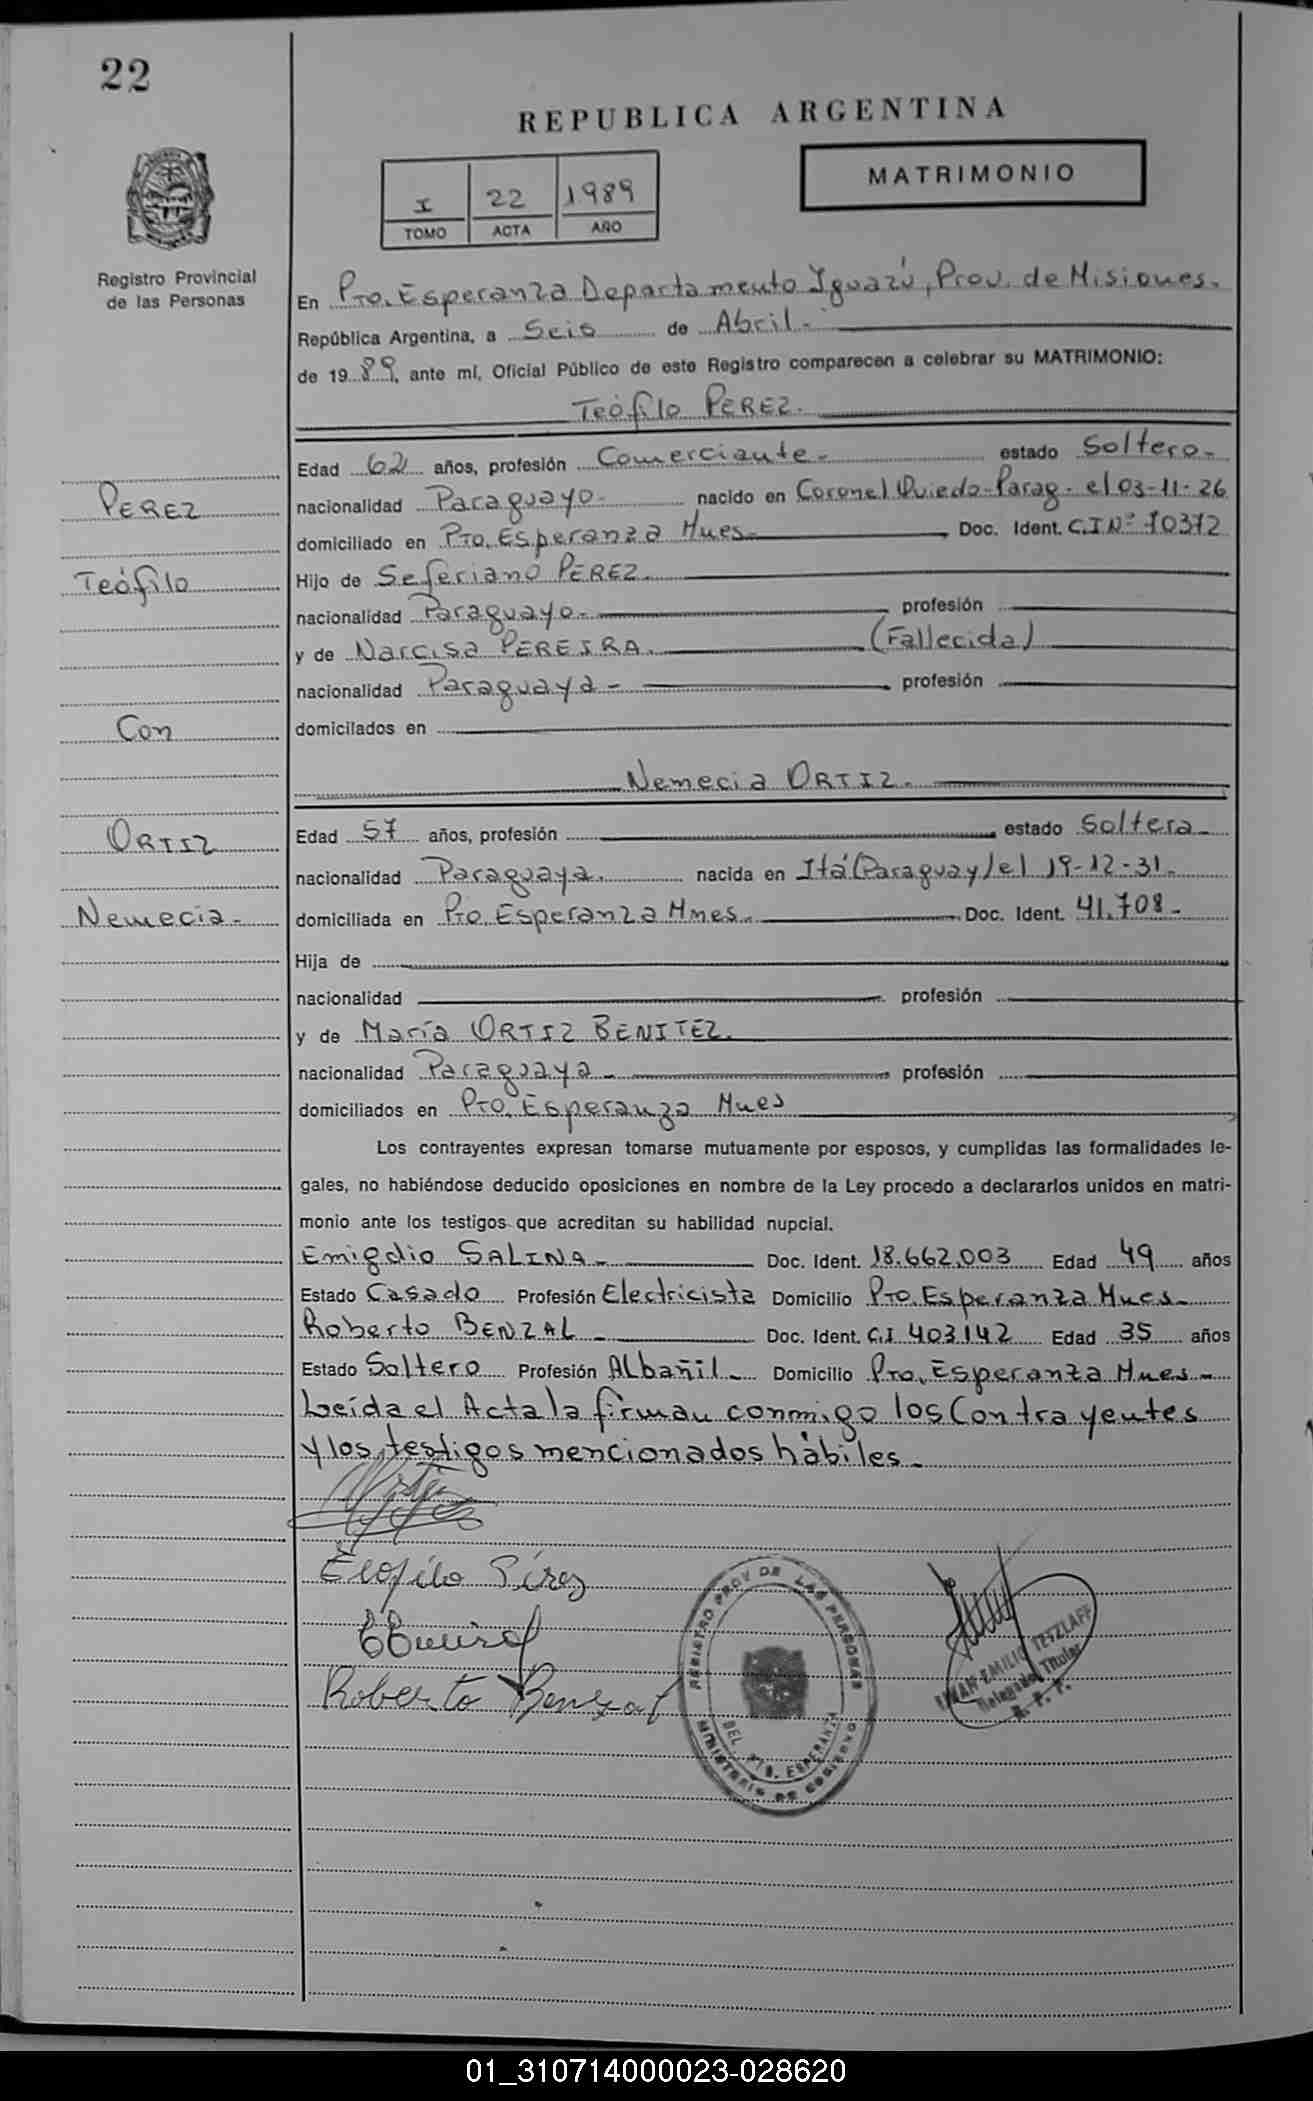 22
REPUBLICA ARGENTINA
MATRIMONIO
I 22 1989
TOMO ACTA AÑO
Registro Provincial
de las Personas
En Pto. Esperanza Departamento Iguazú, Prov. de Misiones.
República Argentina, a Seis de Abril.
de 1989, ante mí, Oficial Público de este Registro comparecen a celebrar su MATRIMONIO:
Teófilo PEREZ.
Edad 62 años, profesión Comerciante. estado Soltero.
PEREZ
nacionalidad Paraguayo. nacido en Coronel Oviedo-Parag. el 03-11-26
domiciliado en Pto. Esperanza Mnes. Doc. Ident. C.I Nº 10372
Teófilo
Hijo de Seferiano PEREZ.
nacionalidad Paraguayo. profesión
y de Narcisa PEREIRA. (Fallecida)
nacionalidad Paraguaya profesión
Con
domicilados en
Nemecia ORTIZ.
ORTIZ
Edad 57 años, profesión estado Soltera
nacionalidad Paraguaya. nacida en Itá (Paraguay) el 19-12-31.
Nemecia.
domiciliada en Pto. Esperanza Mnes. Doc. Ident. 41.708
Hija de
nacionalidad profesión
y de María ORTIZ BENITEZ.
nacionalidad Paraguaya profesión
domiciliados en Pto. Esperanza Mnes
Los contrayentes expresan tomarse mutuamente por esposos, y cumplidas las formalidades le-
gales, no habiéndose deducido oposiciones en nombre de la Ley procedo a declararlos unidos en matri-
monio ante los testigos que acreditan su habilidad nupcial.
Emigdio SALINA Doc. Ident. 18.662.003 Edad 49 años
Estado Casado Profesión Electricista Domicilio Pto. Esperanza Mnes.
Roberto BENZAL Doc. Ident. C.I 403142 Edad 35 años
Estado Soltero Profesión Albañil Domicilio Pto. Esperanza Mnes.
Leída el Acta la firman conmigo los Contrayentes
y los testigos mencionados hábiles.
Roberto Benzal
REGISTRO PROV DE LAS PERSONAS
DEL PTO. ESPERANZA
MINISTERIO DE GOBIERNO
EMILIO TETZLAFF
Delegado Titular
R. P. P.
01_310714000023-028620